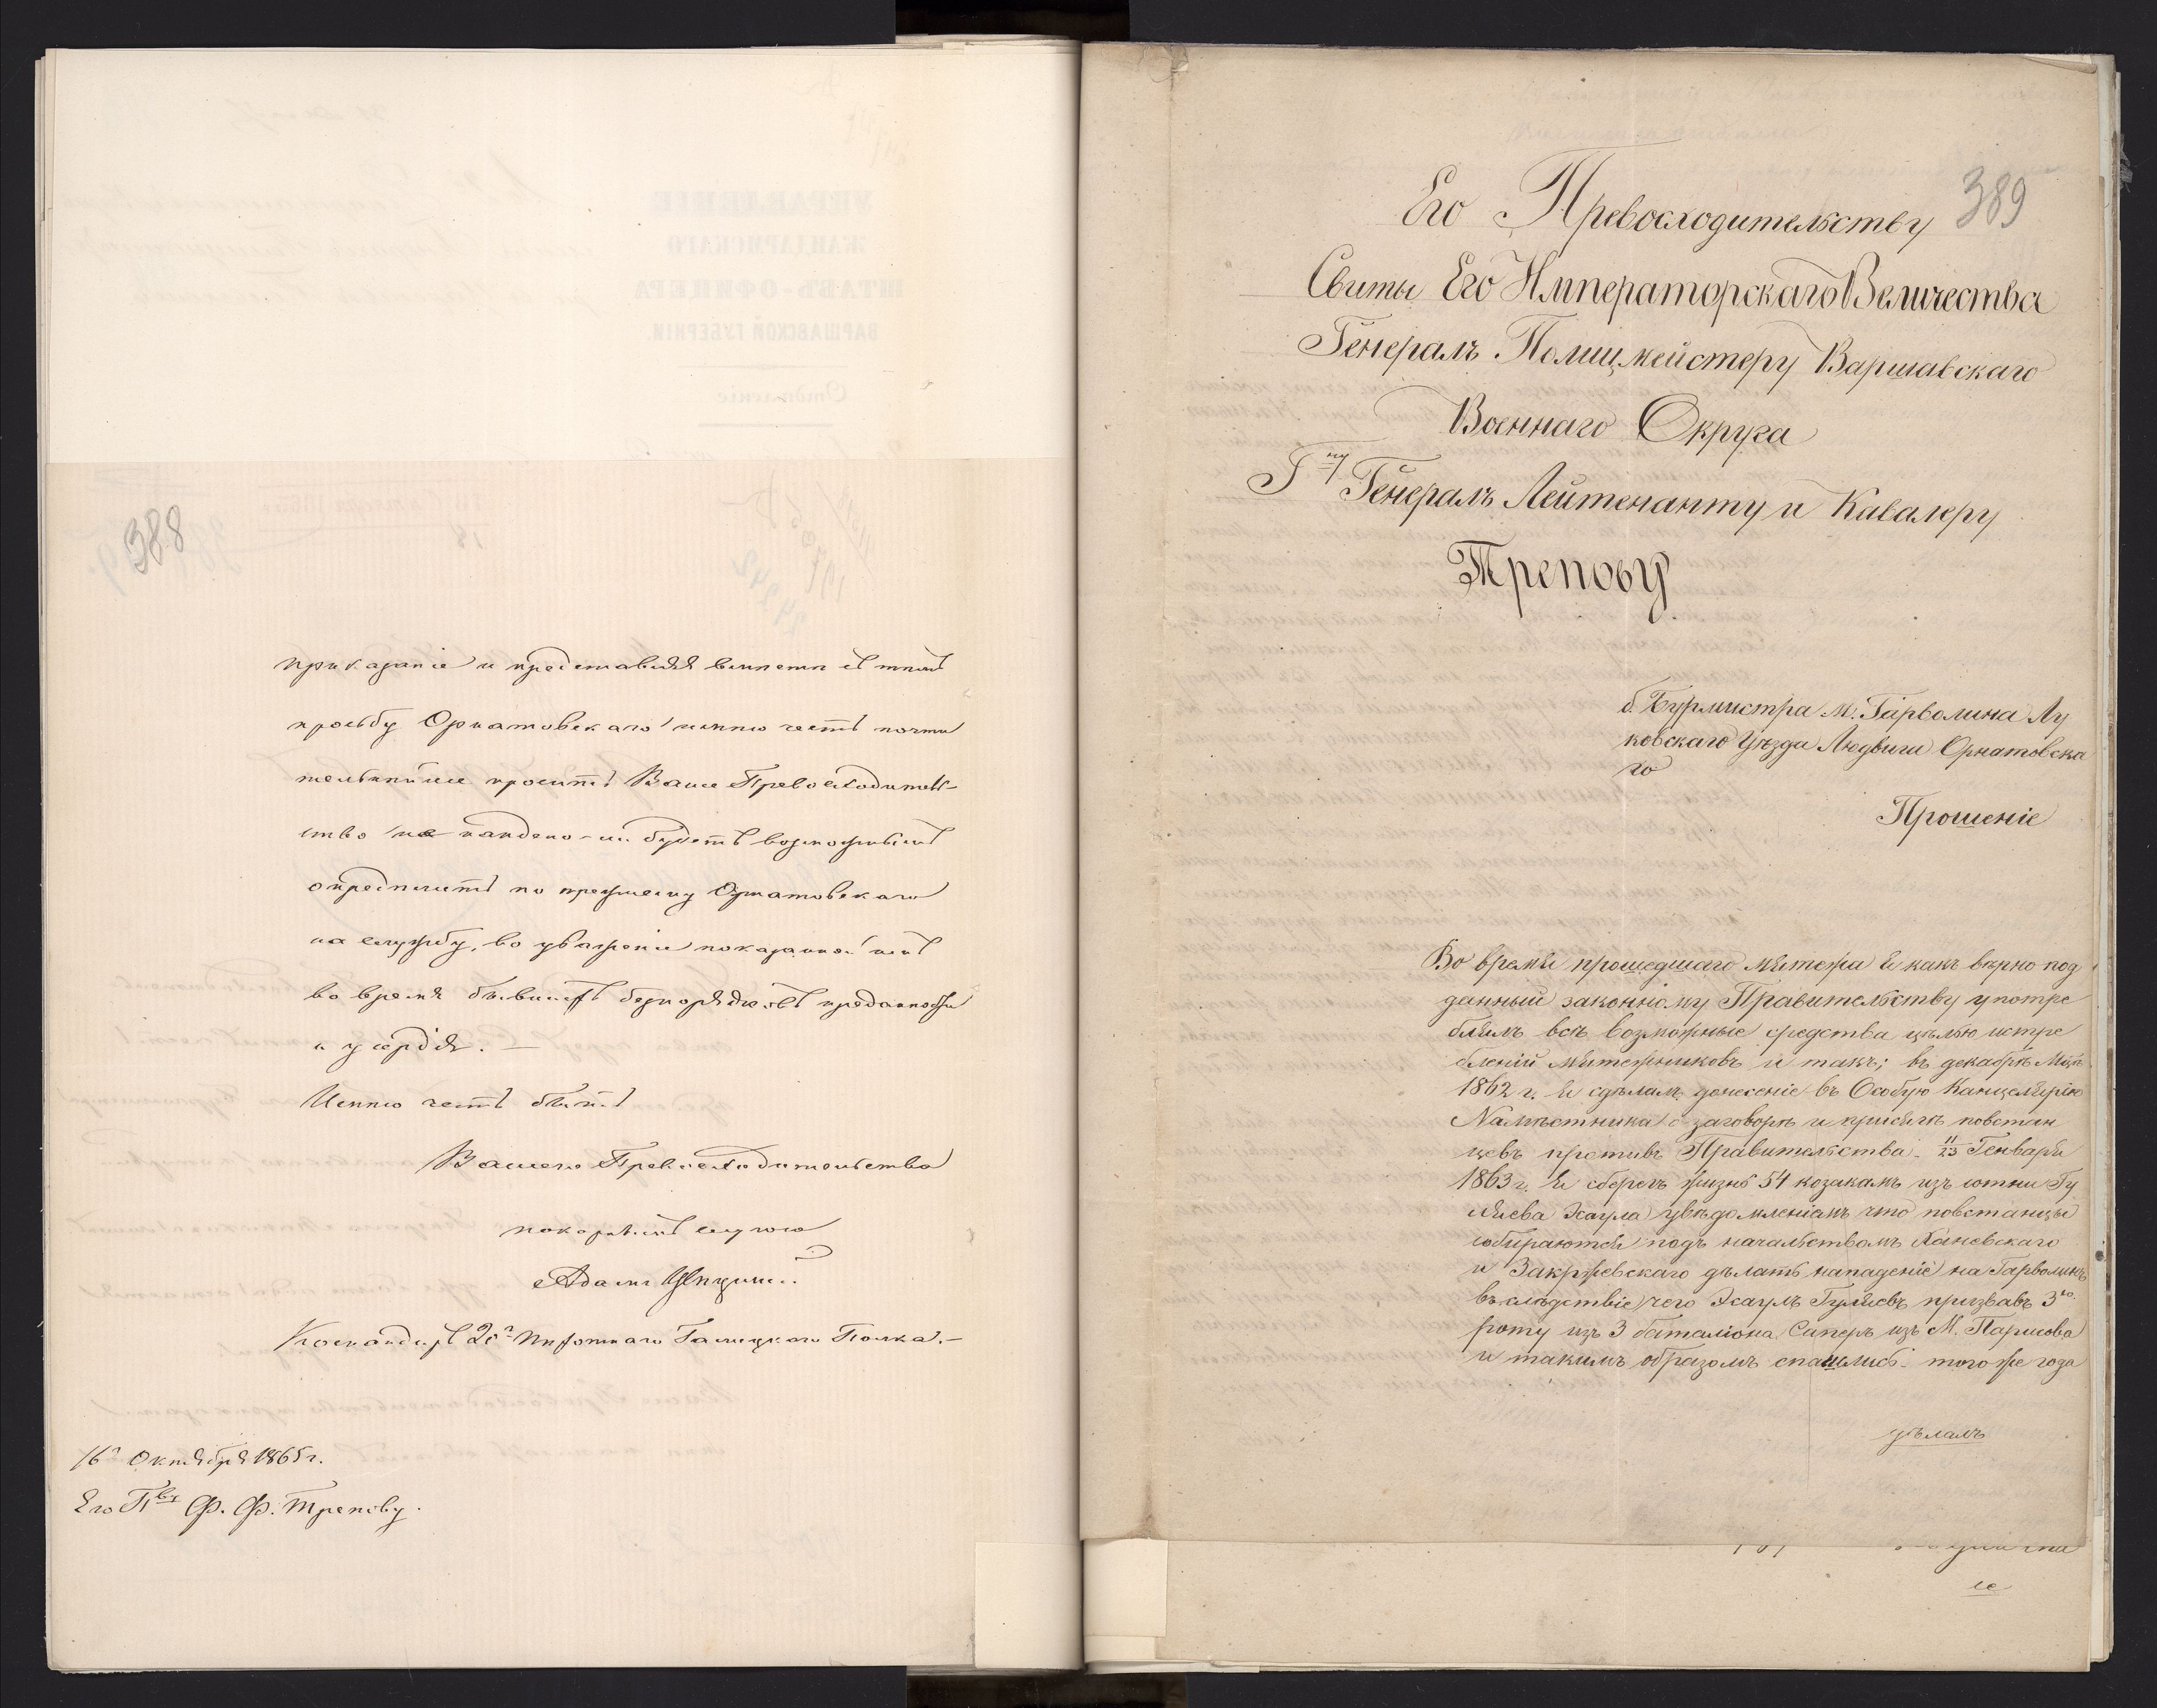 388
приказаніе и представляя вмѣстѣ съ тѣмъ
просьбу Орнатовскаго имѣю честь почти
тельнѣйше просить Ваше Превосходитель-
ство не найдено-ли будетъ возможнымъ
опредѣлить по прежнему Орнатовскаго
на службу, во уваженіе показанной имъ
во время бывшихъ безпорядковъ преданности
и усердія. —
Имѣю честь быть
Вашего Превосходительства
покорнѣйшій слугою
Адамъ
Командиръ 20го Пѣхотнаго Галицкаго Полка. —
16го Октября 1865 г.
Его Пву Ф. Ф. Трепову.
389
Его Превосходительству
Свиты Его Императорскаго Величества
Генералъ Полицмейстеру Варшавскаго
Военнаго Округа
Гну Генералъ Лейтенанту и Кавалеру
Трепову
б. Бурмистра М. Гарволина Лу
ковскаго Уѣзда Людвига Орнатовска
го
Прошеніе
Во время прошедшаго мятежа я какъ вѣрно под
данный законному Правительству употре
блялъ всѣ возможные средства цѣлью истре
бленій мятежниковъ и такъ; въ декабрѣ Мцѣ
1862 г. я сдѣлалъ донесеніе въ Особую Канцелярію
Намѣстника о заговорѣ и присягѣ повстан
цевъ противъ Правительства - 11/23 Генваря
1863 г. я сберегъ жизнь 54 козакамъ изъ сотни Гу
ляева Эсаула увѣдомленіемъ что повстанцы
собираются подъ начальствомъ Яневскаго
и Закржевскаго дѣлать нападеніе на Гарволинъ
въ слѣдствіе чего Эсаулъ Гуляевъ призвавъ 3ю
роту изъ 3 баталіона Саперъ изъ М. Парисова
и такимъ образомъ спаслись - того же года
дѣлалъ
ее